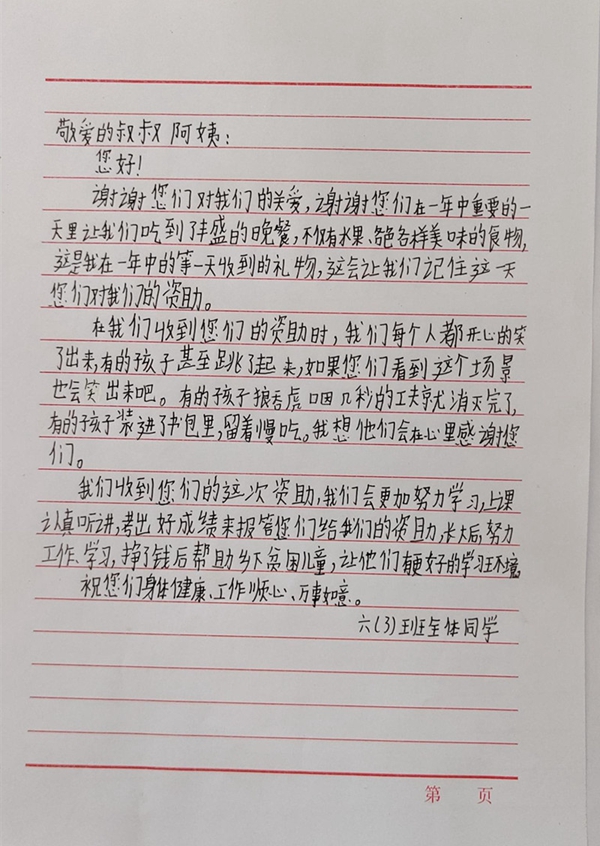 敬爱的叔叔阿姨：
您好！
谢谢您们对我们的关爱，谢谢您们在一年中重要的一
天里让我们吃到了丰盛的晚餐，不仅有水果、各色各样美味的食物，
这是我在一年中的第一天收到的礼物，这会让我们记住这一天
您们对我们的资助。
在我们收到您们的资助时，我们每个人都开心的笑
了出来，有的孩子甚至跳了起来，如果您们看到这个场景
也会笑出来吧。有的孩子狼吞虎咽几秒的工夫就消灭完了，
有的孩子装进了书包里，留着慢吃。我想他们会在心里感谢您
们。
我们收到您们的这次资助，我们会更加努力学习，上课
认真听讲，考出好成绩来报答您们给我们的资助，长大后，努力
工作、学习，挣了钱后帮助乡下贫困儿童，让他们有更好的学习环境。
祝您们身体健康、工作顺心、万事如意。
六(3)班全体同学
第 页